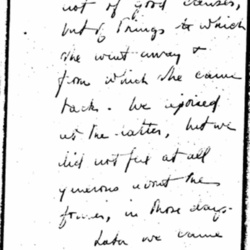 not of good causes,
but of things to which
she went away &
from which she came
back. We rejoiced
at the latter, but we
did not feel at all
generous about the
former, in those days.
Later we came